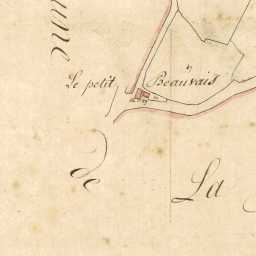 Le petit Beauvais
de
La